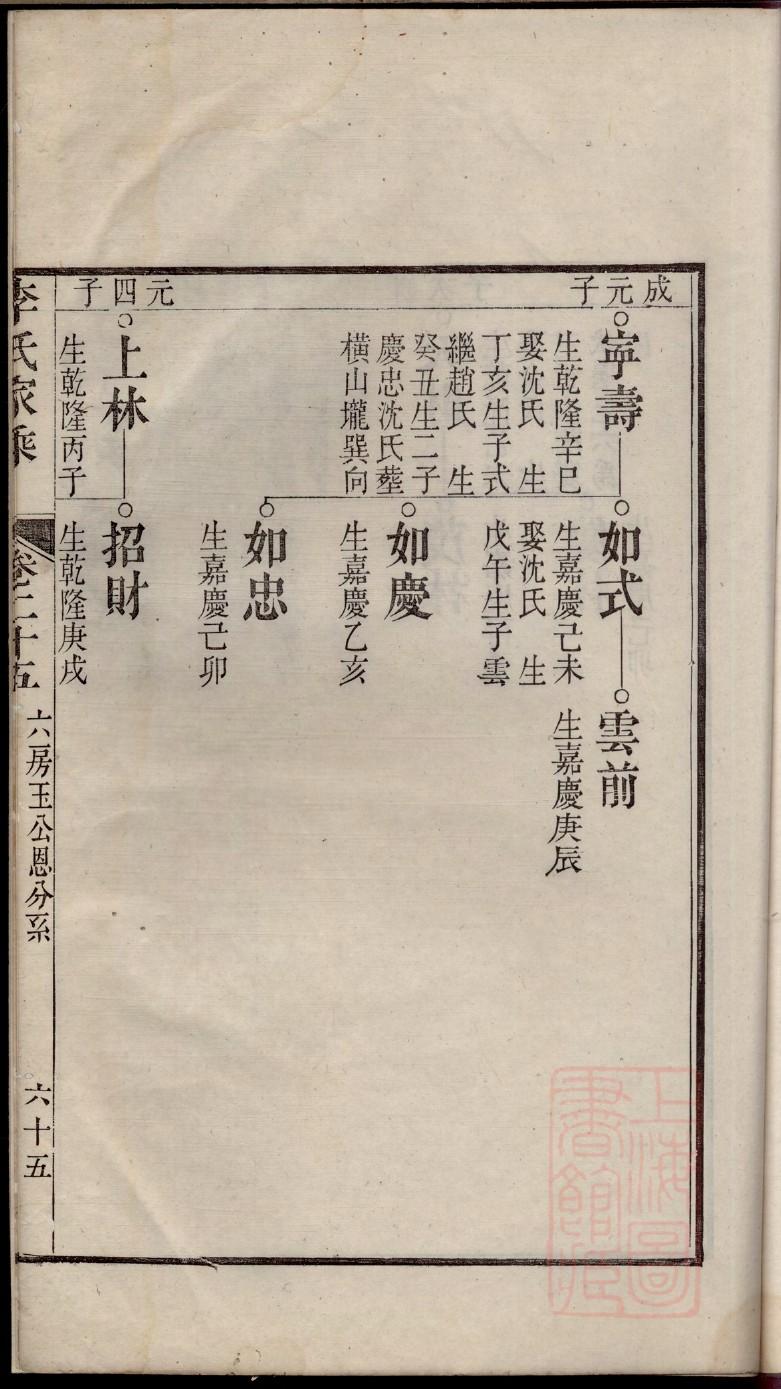 成元子
寕壽
生乾隆辛巳
娶沈氏 生
丁亥生子式
繼趙氏 生
癸丑生二子
慶忠沈氏塟
橫山壠巽向
如式
生嘉慶己未
娶沈氏 生
戊午生子雲
雲前
生嘉慶庚辰
如慶
生嘉慶乙亥
如忠
生嘉慶己卯
元四子
上林
生乾隆丙子
招財
生乾隆庚戌
李氏家乘
卷二十五
六房玉公恩分系
六十五
上海圖
書館藏